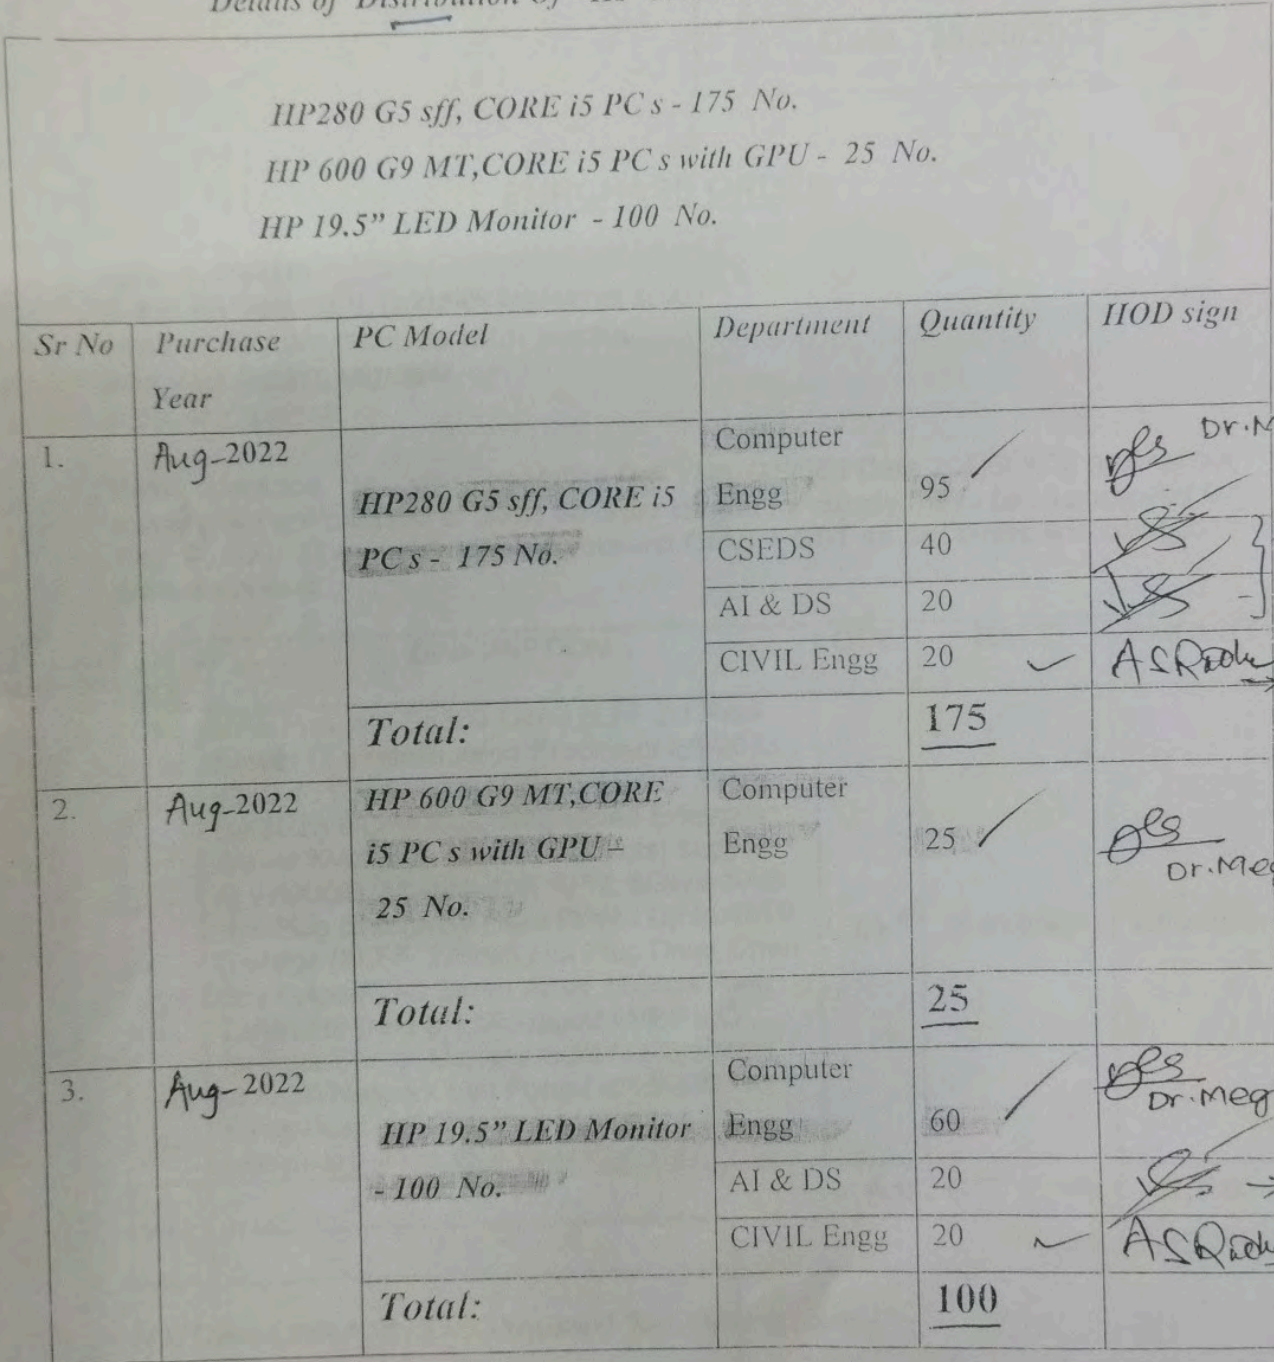 Details of Distribution of
HP280 G5 sff, CORE i5 PC s - 175 No.
HP 600 G9 MT,CORE i5 PC s with GPU - 25 No.
HP 19.5” LED Monitor - 100 No.
Sr No Purchase Year PC Model Department Quantity HOD sign
1. Aug-2022 HP280 G5 sff, CORE i5 PC s - 175 No. Computer Engg 95 Dr.M
CSEDS 40
AI & DS 20
CIVIL Engg 20
Total: 175
2. Aug-2022 HP 600 G9 MT,CORE i5 PC s with GPU – 25 No. Computer Engg 25 Dr.Meg
Total: 25
3. Aug-2022 HP 19.5” LED Monitor - 100 No. Computer Engg 60 Dr.Meg
AI & DS 20
CIVIL Engg 20
Total: 100